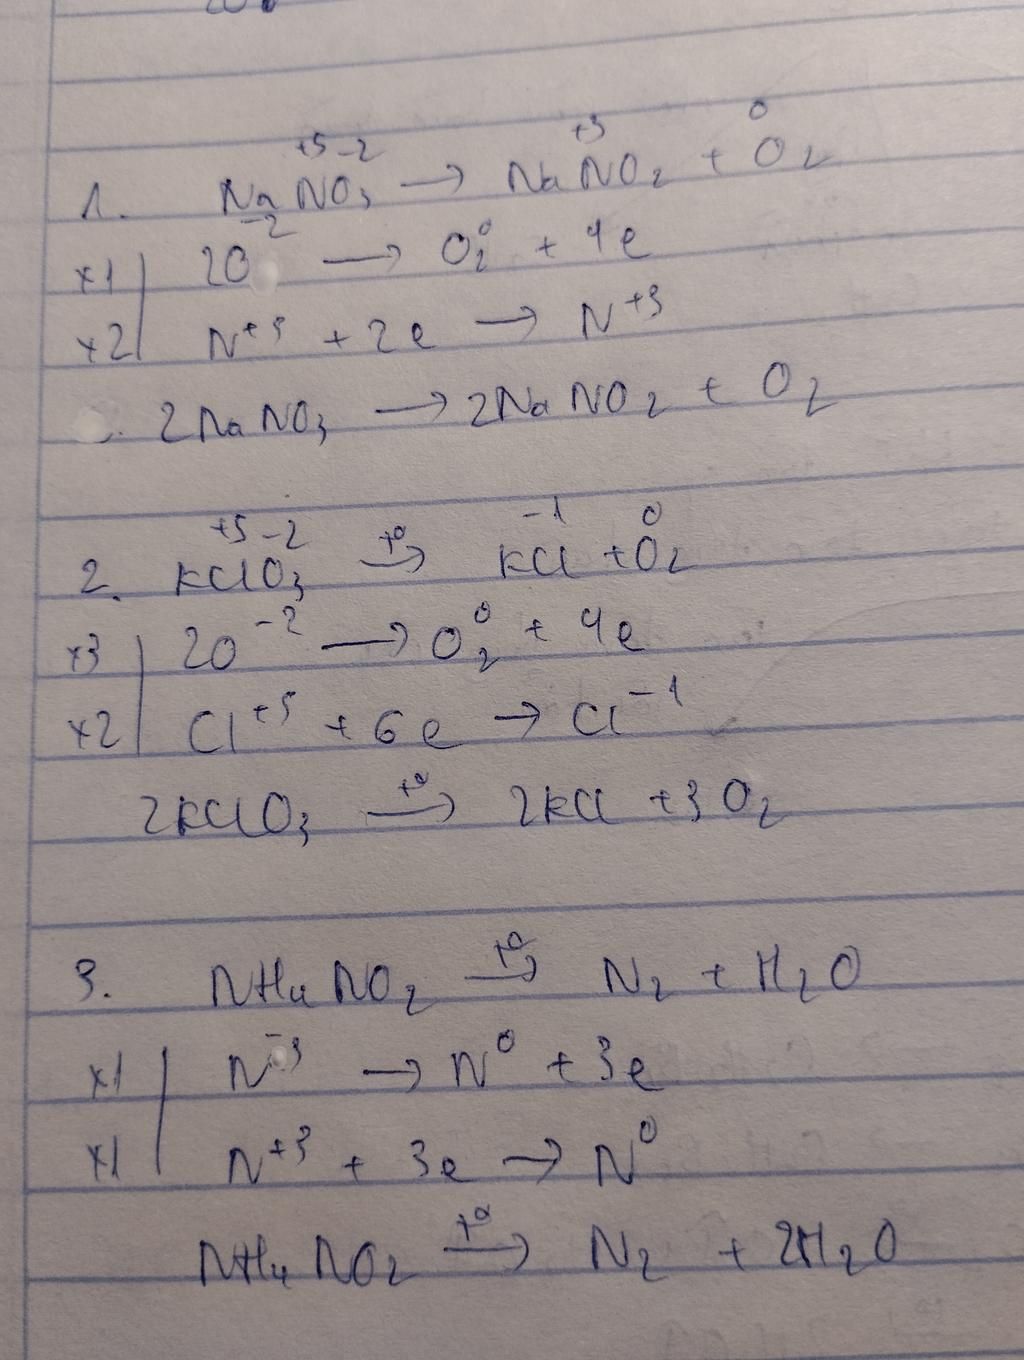 +5 -2 +3 0
1. NaNO3 → NaNO2 + O2
x1 | 2O⁻² → O2⁰ + 4e
x2 | N⁺⁵ + 2e → N⁺³
2NaNO3 → 2NaNO2 + O2
+5 -2 -1 0
2. KClO3 →(t°) KCl + O2
x3 | 2O⁻² → O2⁰ + 4e
x2 | Cl⁺⁵ + 6e → Cl⁻¹
2KClO3 →(t°) 2KCl + 3O2
3. NH4NO2 →(t°) N2 + H2O
x1 | N⁻³ → N⁰ + 3e
x1 | N⁺³ + 3e → N⁰
NH4NO2 →(t°) N2 + 2H2O